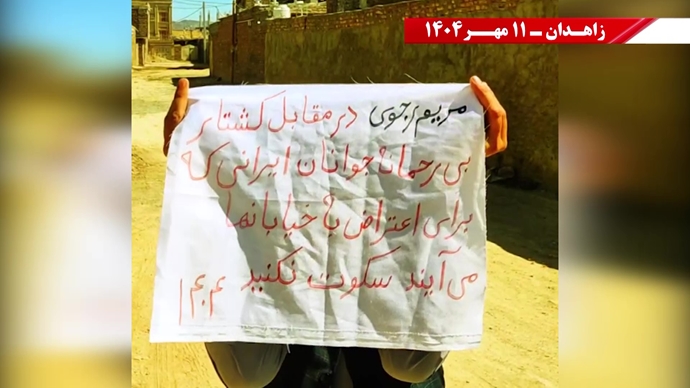 زاهدان ـ ۱۱ مهر ۱۴۰۴
مریم رجوی در مقابل کشتار
بی رحمانهٔ جوانان ایرانی که
برای اعتراض به خیابانها
می آیند سکوت نکنید